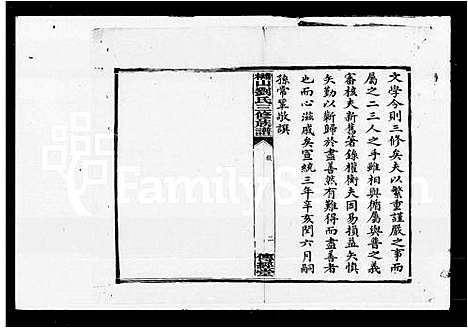 文学今則三修矣夫以繁重謹嚴之事而
屬之二三人之手難相與循屬與普之義
審核夫新舊著錄權衡夫同易損益矣慎
矣勤以斯歸於盡善然有難得而盡善者
也而心滋戚矣宣統三年辛亥閏六月嗣
孫常單敬譔
楠山劉氏三修族譜
敘
二
傳經堂
FamilySearch